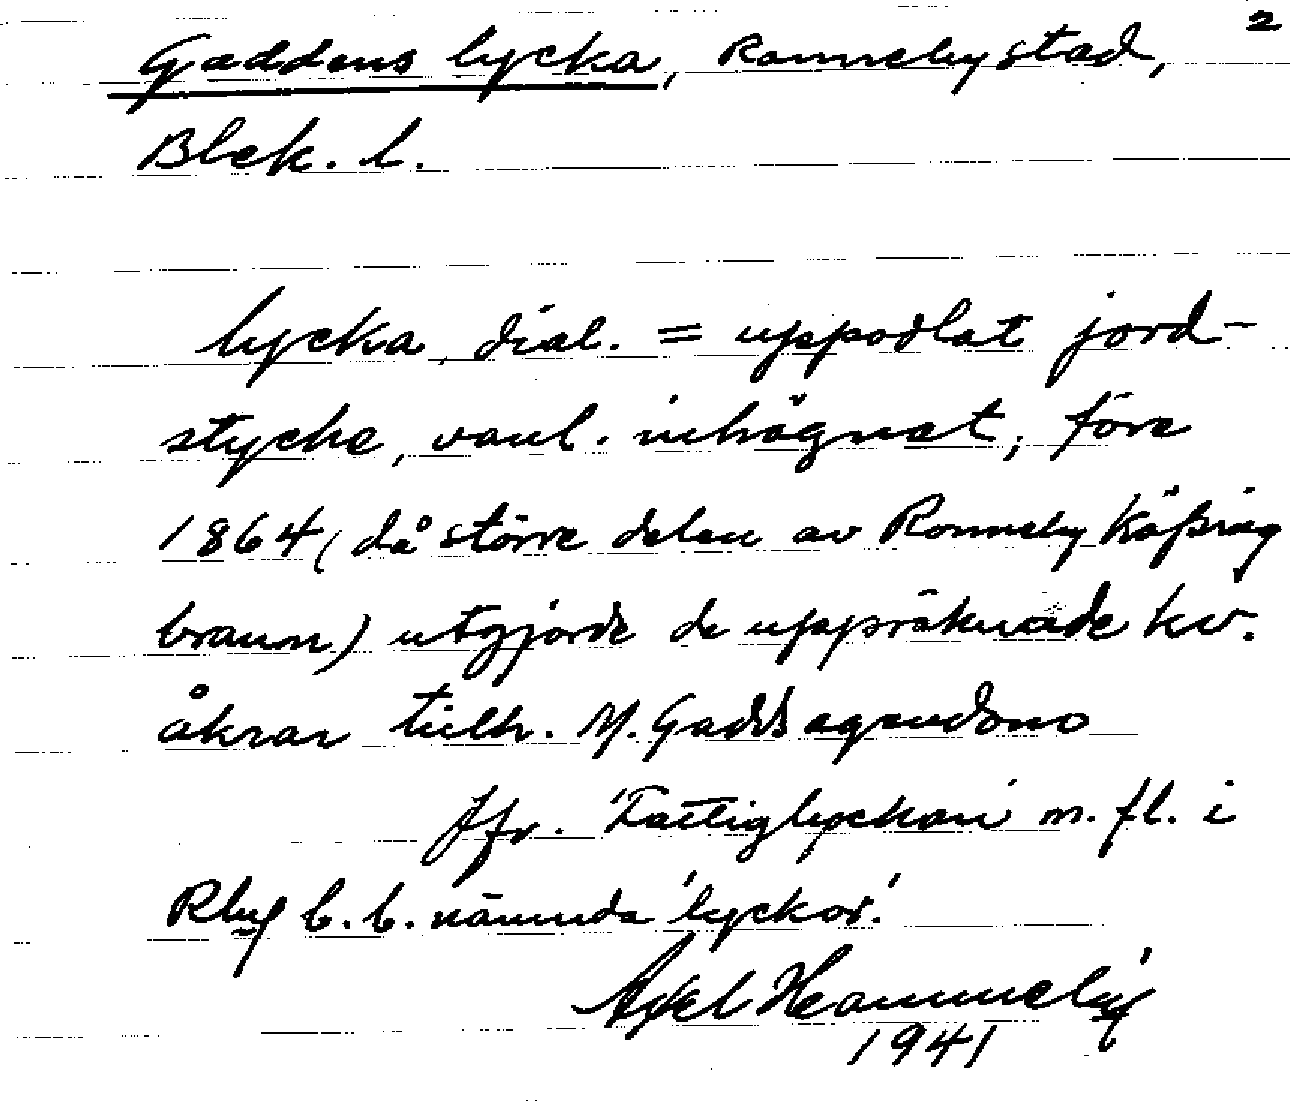 2
Gaddens lycka, Ronneby stad,
Blek. l.
lycka, dial. = uppodlat jord-
stycke, vanl. inhägnat; före
1864 (då större delen av Ronneby Köping
brann) utgjorde de uppräknade kv.
åkrar tillh. M. Gadds egendom
Jfr. 'Fattiglyckan' m. fl. i
Rby b. b. nämnda 'lyckor'.
Axel Hammeby
1941